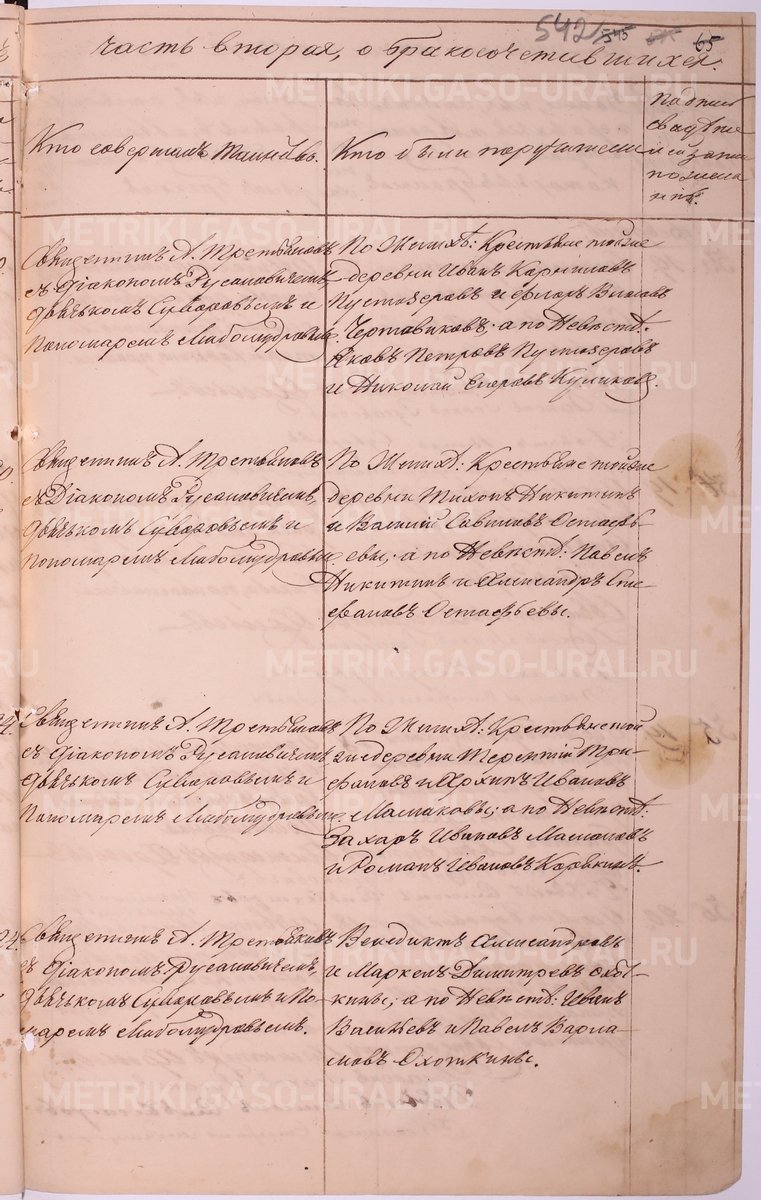 542 545 65
часть вторая, о бракосочетавшихся.
Кто совершалъ Таинство.
Кто были поручители
Подпись
свидѣте
лей запи
по жела
нію.
Священникъ А. Третьяковъ
съ Діакономъ Русановичемъ,
дьячкомъ Суворовымъ и
Пономаремъ Любомудровымъ
По Женихѣ: Крестьяне тойже
деревни Иванъ
Пустозеровъ и Флоръ
Чертовиковъ; а по Невѣстѣ:
Яковъ Петровъ Пустозеровъ
и Николай Егоровъ Куликовъ.
Священникъ А. Третьяковъ
съ Діакономъ Русановичемъ,
дьячкомъ Суворовымъ и
Пономаремъ Любомудровым
По Женихѣ: Крестьяне тойже
деревни Тихонъ Никитинъ
и Василій Савинъ Остафь-
евы; а по Невѣстѣ: Павелъ
Никитинъ и Александръ Сте-
фановъ Остафьевы.
24. Священникъ А. Третьяковъ
съ Діакономъ Русановичемъ
дьячкомъ Суворовымъ и
Пономаремъ Любомудровым
По Женихѣ: Крестьяне той
же деревни Терентій Три-
фановъ и Архипъ Ивановъ
Маслаковы; а по Невѣстѣ:
Захаръ Ивановъ Маслаковъ
и Романъ Ивановъ Карякинъ.
24. Священникъ А. Третьяковъ
съ Діакономъ Русановичемъ,
дьячкомъ Суворовымъ и По-
маремъ Любомудровымъ.
Венедиктъ Александровъ
и Маркелъ Димитревъ
кины; а по Невѣстѣ: Иванъ
Васильевъ и Павелъ Варла-
мовъ Охоткины.
METRIKI.GASO-URAL.RU